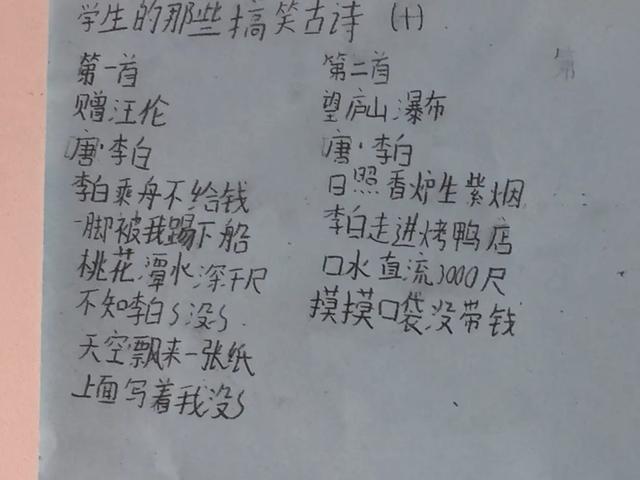 学生的那些搞笑古诗(十)
第一首
赠汪伦
唐·李白
李白乘舟不给钱
一脚被我踢下船
桃花潭水深千尺
不知李白S没S
天空飘来一张纸
上面写着我没S
第二首
望庐山瀑布
唐·李白
日照香炉生紫烟
李白走进烤鸭店
口水直流3000尺
摸摸口袋没带钱
第